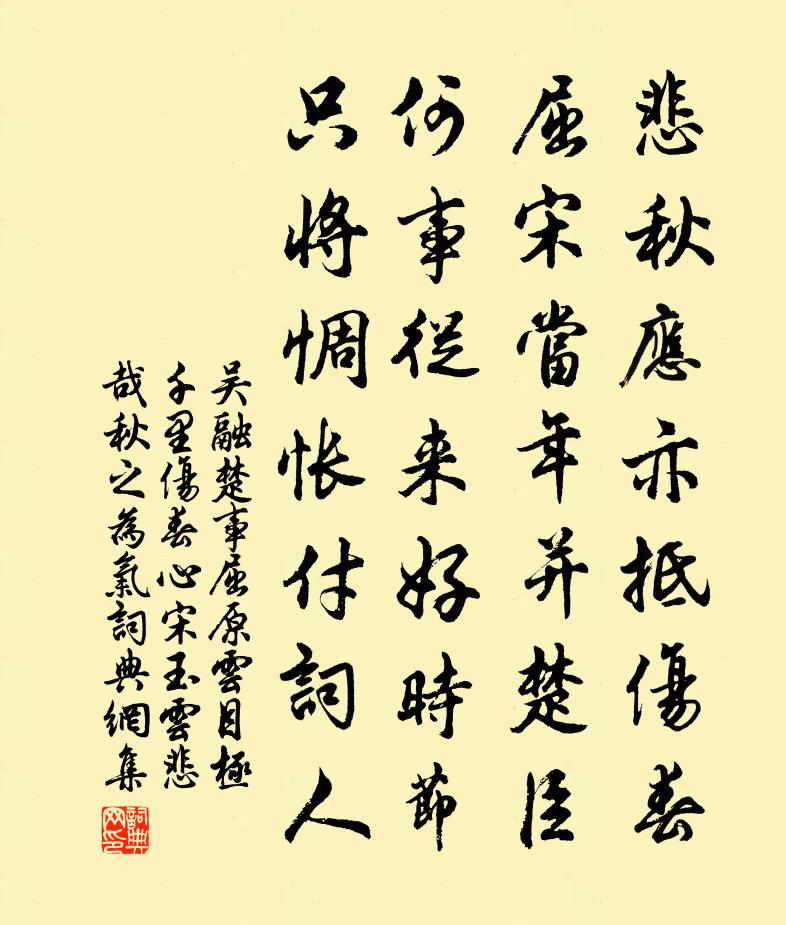 悲秋應亦抵傷春
屈宋當年并楚臣
何事從来好時節
只將惆悵付詞人
吳融楚事屈原雲目極
千里傷春心宋玉雲悲
哉秋之為氣詞典網集
詞典网印